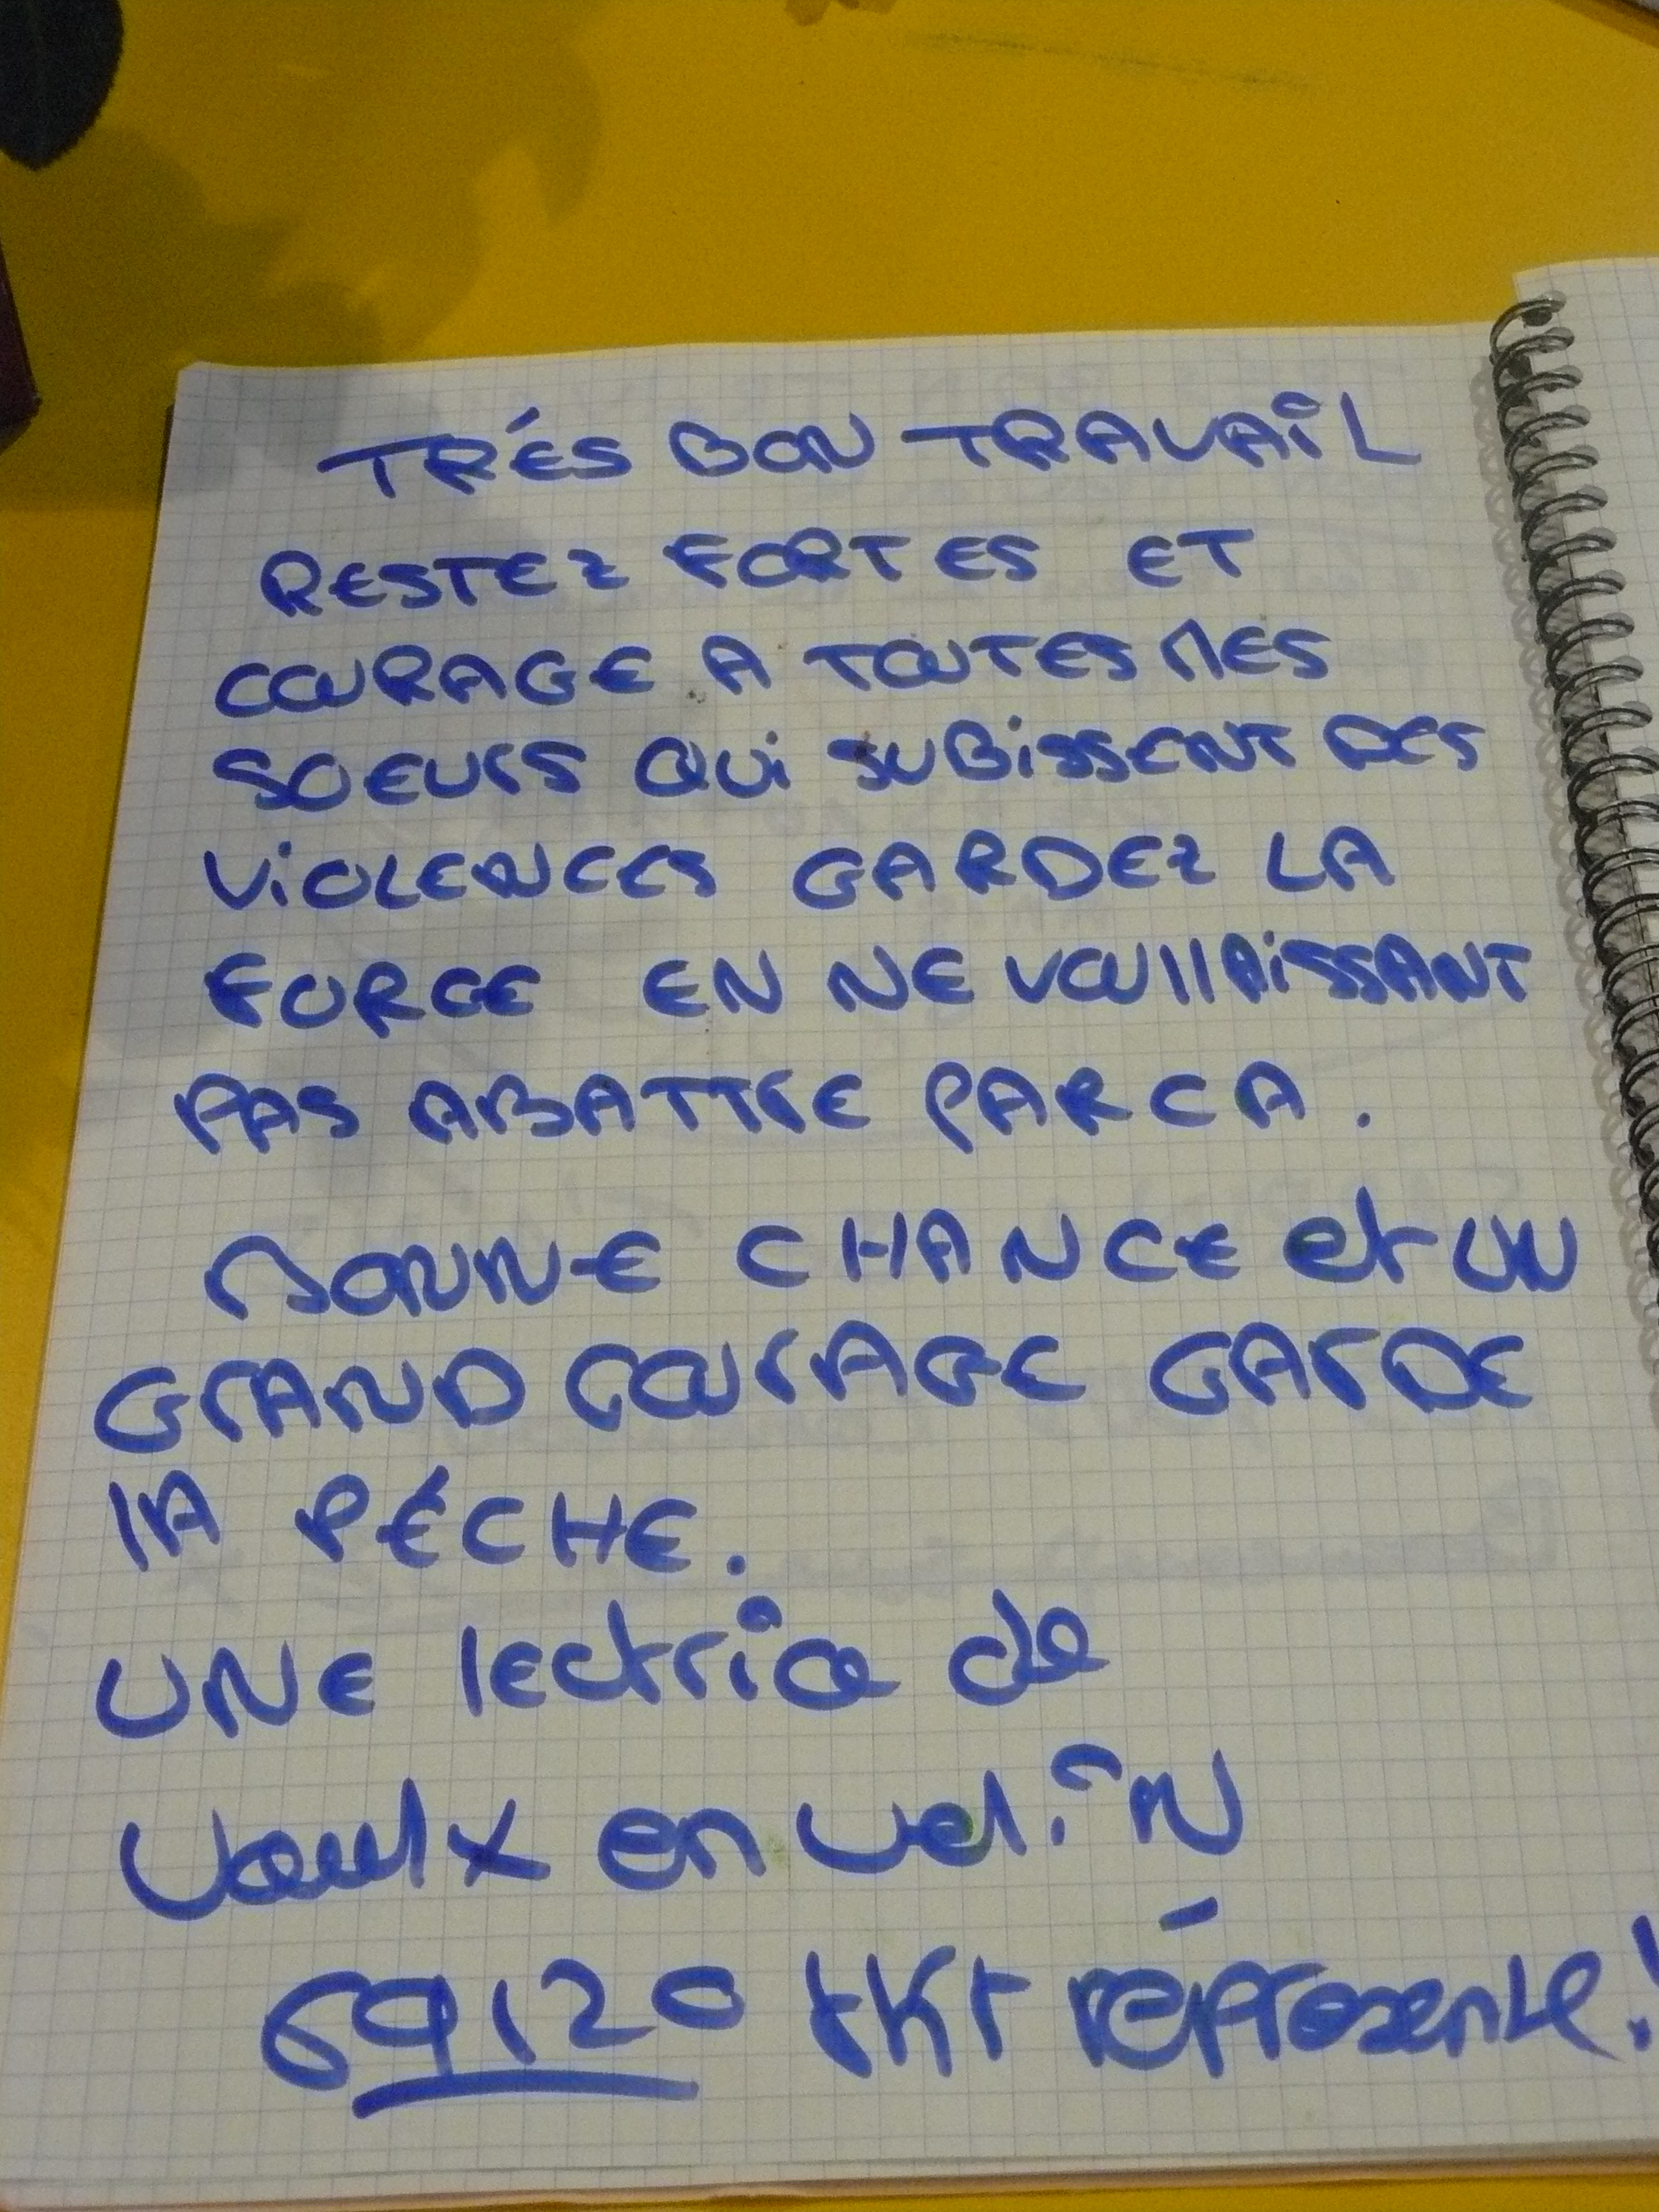 TRÉS BON TRAVAiL
RESTEZ FORTES ET
COURAGE A TOUTES MES
SOEURS QUi SUBiSSENT DES
ViOLENCES GARDEZ LA
FORCE EN NE VOUllAiSSANT
PAS ABATTRE PAR CA.
BONNE CHANCE et UN
GrAND COUrAGE GArDE
lA PÉCHE.
UNE lectrice de
Vaulx en veliN
69120 tKt réprésente!